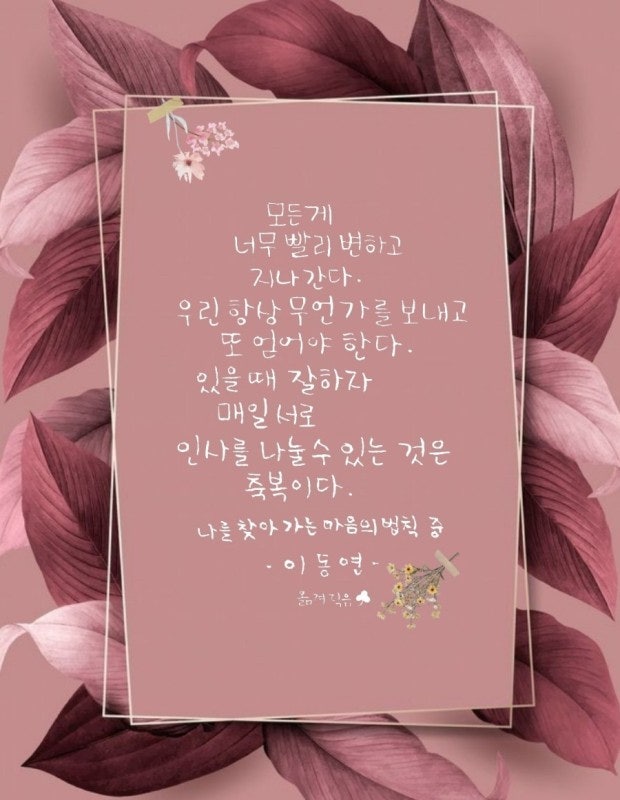 모든게
너무 빨리 변하고
지나간다.
우린 항상 무언가를 보내고
또 얻어야 한다.
있을 때 잘하자
매일 서로
인사를 나눌 수 있는 것은
축복이다.
나를 찾아가는 마음의 법칙 중
- 이동연 -
옮겨적음